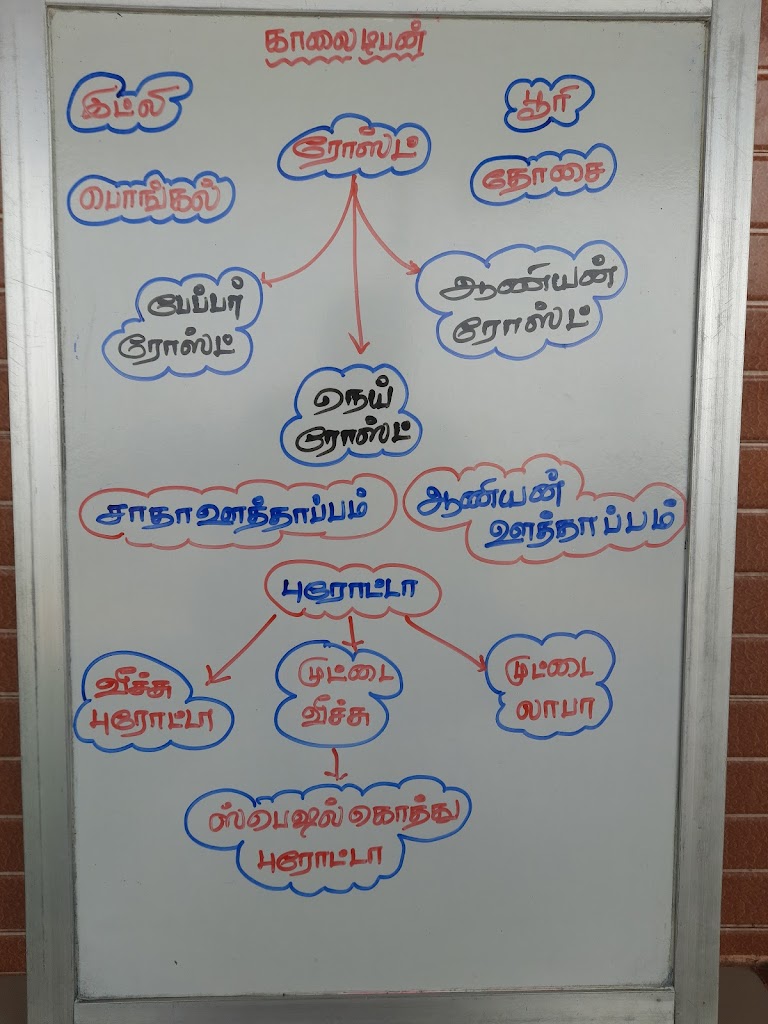 காலை டிபன்
இட்லி
பூரி
ரோஸ்ட்
பொங்கல்
தோசை
பேப்பர்
ரோஸ்ட்
ஆனியன்
ரோஸ்ட்
நெய்
ரோஸ்ட்
சாதா ஊத்தாப்பம்
ஆனியன்
ஊத்தாப்பம்
புரோட்டா
வீச்சு
புரோட்டா
முட்டை
வீச்சு
முட்டை
லாபா
ஸ்பெஷல் கொத்து
புரோட்டா